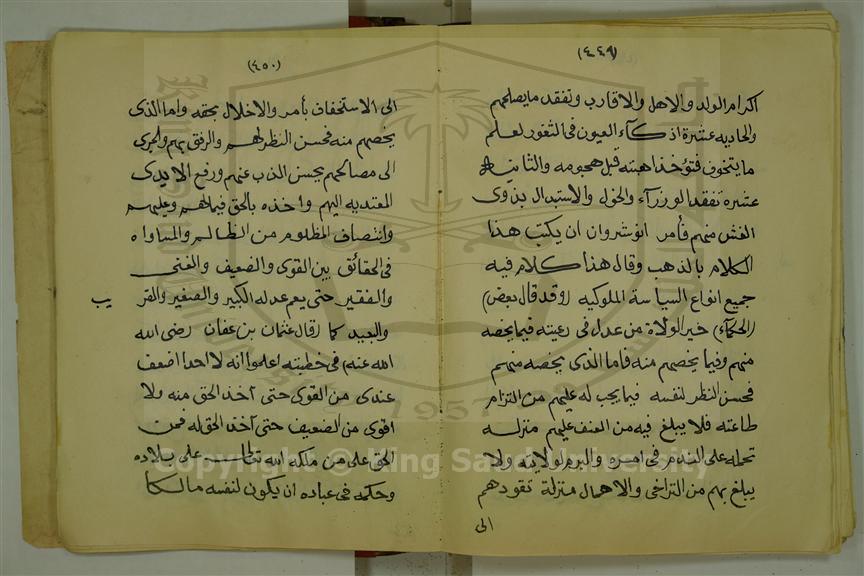 (٤٤٩)
اكرام الولد والاهل والاقارب وتفقد ما يصلحهم
والحاديه عشرة اذكآء العيون فى الثغور لعلم
ما يتخوف فتؤخذ اهبته قبل هجومه والثانية
عشرة تفقد الوزرآء والخول والاستبدال بذوى
الغش منهم فأمر انوشروان ان يكتب هذا
الكلام بالذهب وقال هذا كلام فيه
جميع انواع السياسة الملوكيه (وقد قال بعض)
(الحكمآء) خير الولاة من عدل فى رعيته فيما يخصه
منهم وفيما يخصهم منه فاما الذى يخصه منهم
فحسن النظر لنفسه فيما يجب له عليهم من التزام
طاعته فلا يبلغ فيه من العنف عليهم منزلـة
تحمله على الندم فى امره والبرم لولايته ولا
يبلغ بهم من التراخى والاهمال منزلة تقودهم
الى
(٤٥٠)
الى الاستخفاف بأمر والاخلال بحقه واما الذى
يخصهم منه فحسن النظر لهم والرفق بهم والجرى
الى مصالحهم بحسن الذب عنهم ورفع الايدى
المعتديه اليهم واخذه بالحق فيما لهم وعليهم
وانتصاف المظلوم من الظالم والمساواه
فى الحقائق بين القوى والضعيف والغنى
والفقير حتى يعم عدله الكبير والصغير والقريب
والبعيد كما (قال عثمان بن عفان رضى الله
الله عنه) فى خطبته اعلموا انه لا احدا اضعف
عندى من القوى حتى آخذ الحق منه ولا
اقوى من الضعيف حتى آخذ الحق له فمن
الحق على من ملكه الله تعالى على بلاده
وحكمه فى عباده ان يكون لنفسه مالكا
1957
Copyright © King Saud University